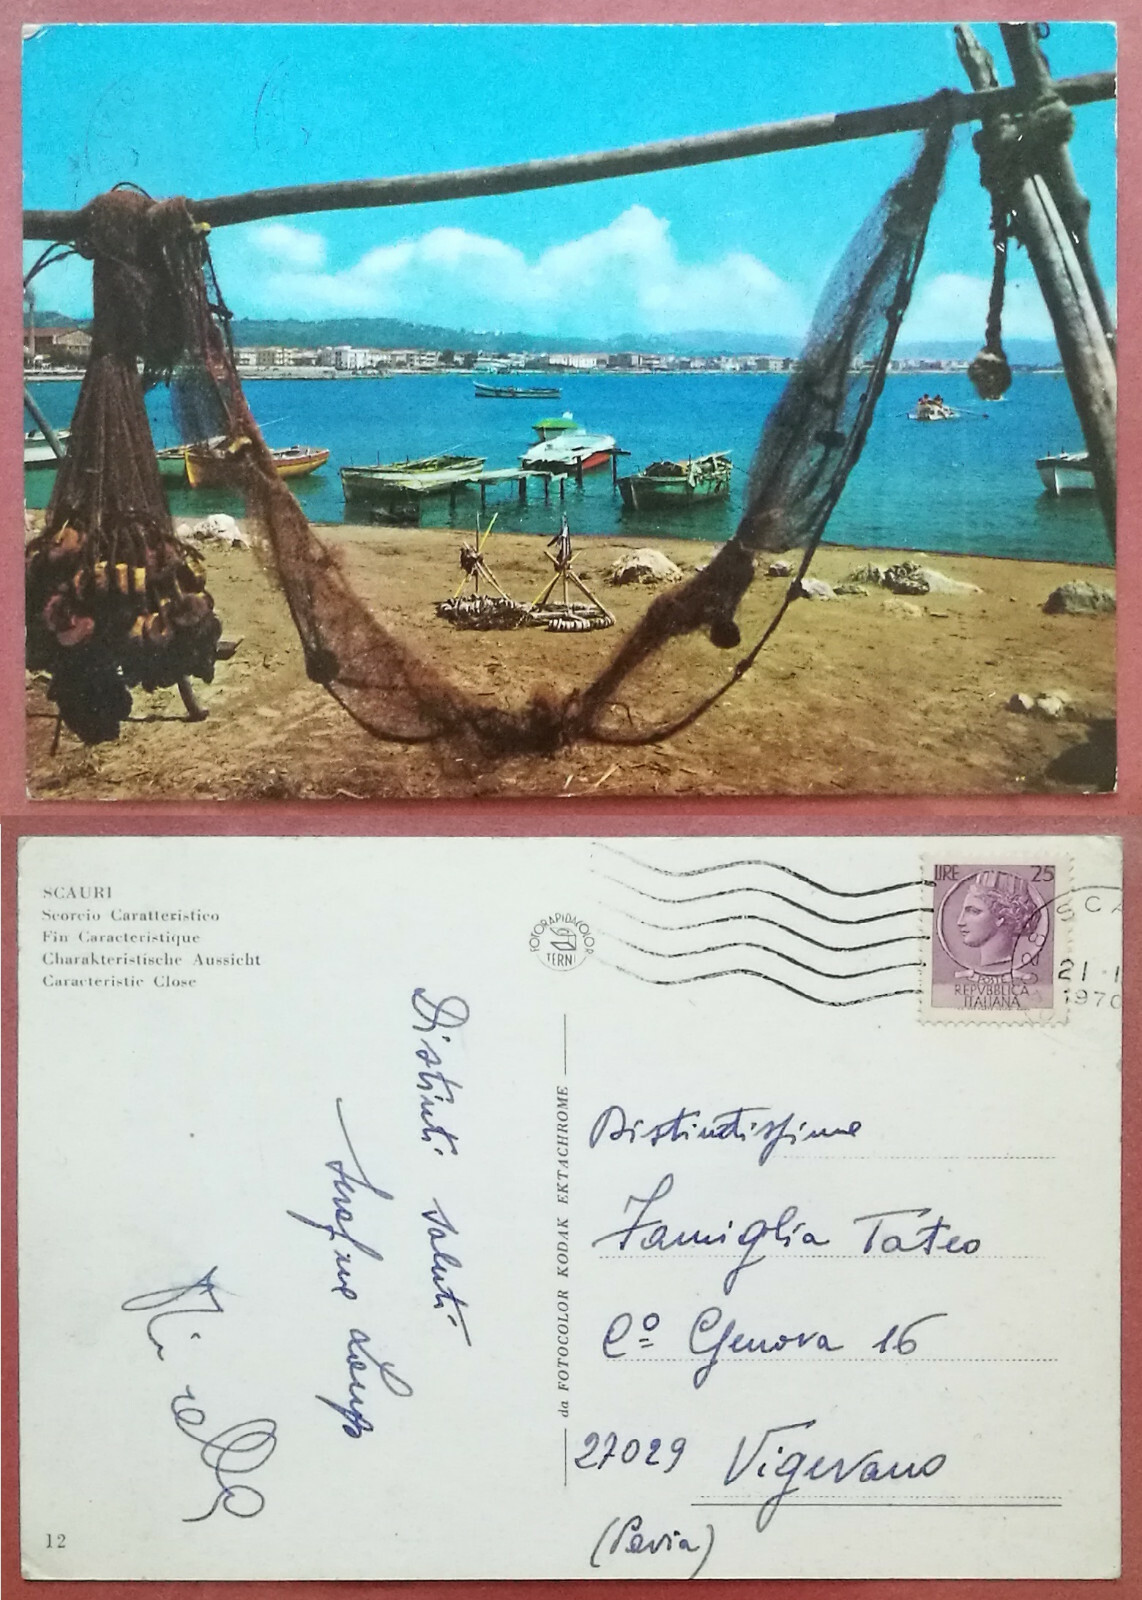 SCAURI
Scorcio Caratteristico
Fin Caracteristique
Charakteristische Aussicht
Caracteristic Close
FOTORAPIDACOLOR
TERNI
LIRE 25
POSTE
REPVBBLICA
ITALIANA
SCA
21-1
1970
Distinti saluti
Mirella
da FOTOCOLOR KODAK EKTACHROME
Famiglia Tateo
Cº Genova 16
27029 Vigevano
(Pavia)
12